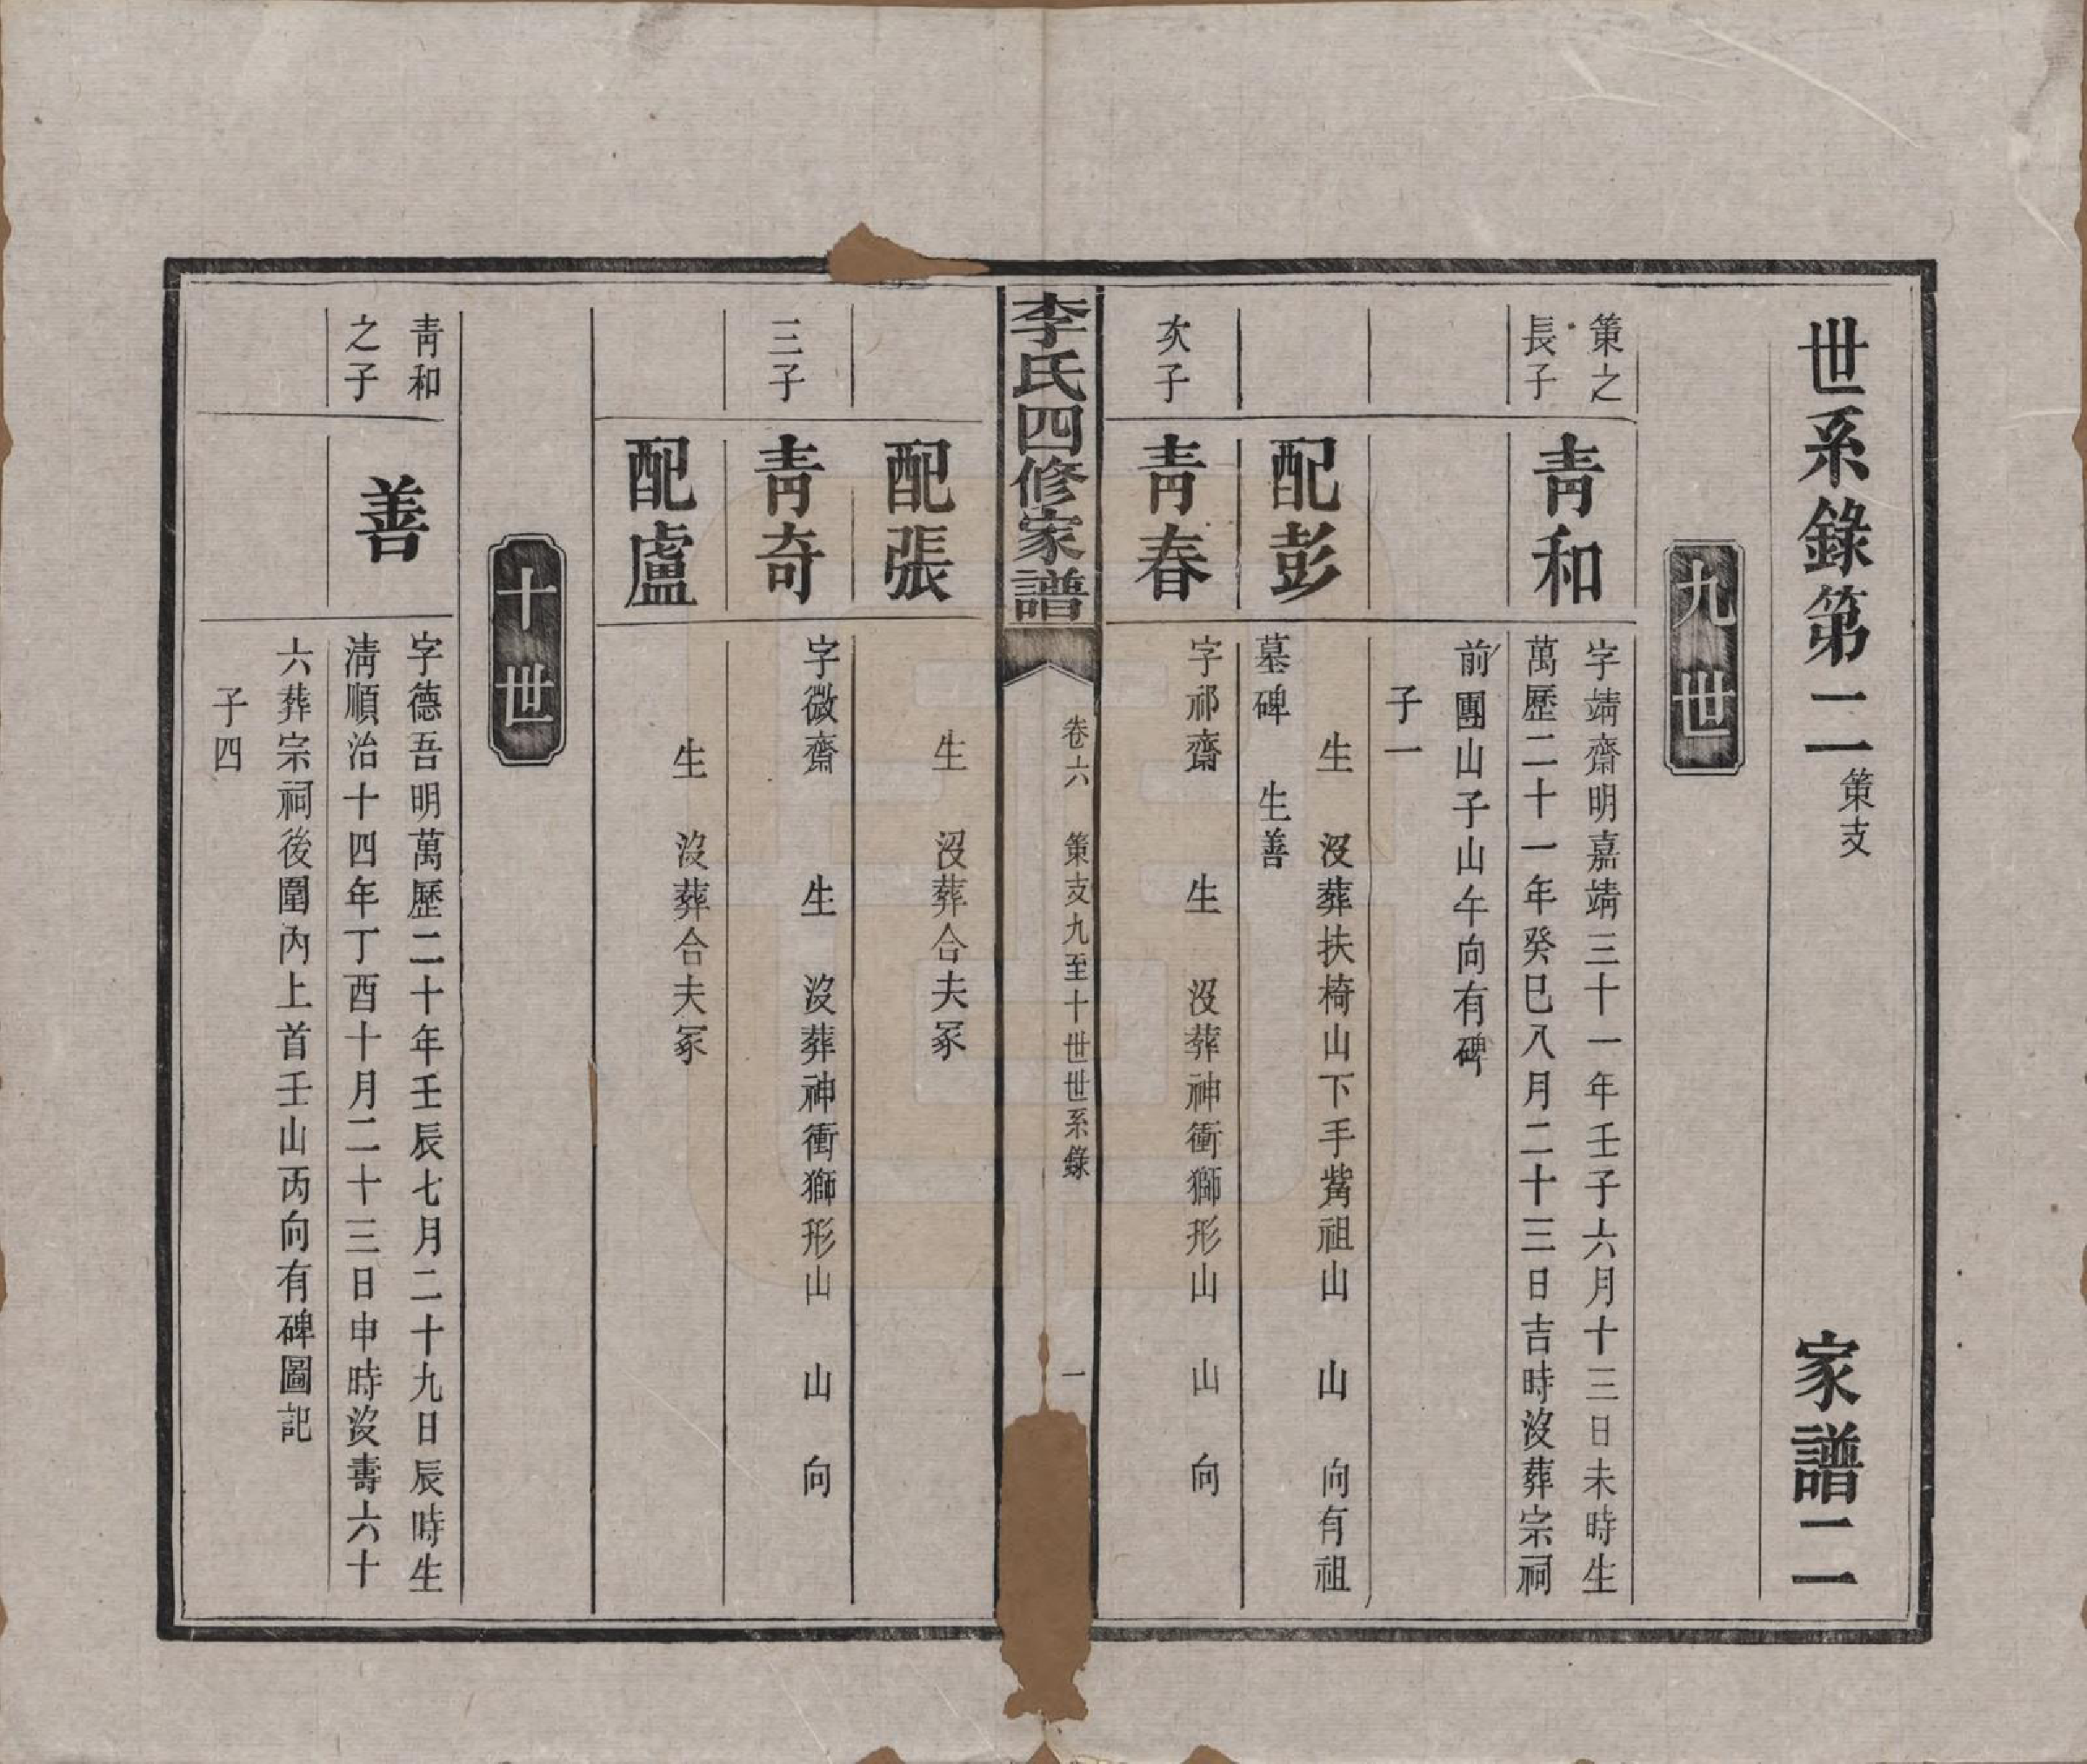 世系錄第二 策支
家譜二
九世
策之長子
靑和
字靖齋明嘉靖三十一年壬子六月十三日未時生
萬歷二十一年癸巳八月二十三日吉時沒葬宗祠
前團山子山午向有碑
子一
配彭
生 沒葬扶椅山下手觜祖山 山 向有祖
墓碑 生善
次子
靑春
字祁齋 生 沒葬神衝獅形山 山 向
李氏四修家譜
卷六 策支九至十世世系錄
一
配張
生 沒葬合夫冢
三子
靑奇
字微齋 生 沒葬神衝獅形山 山 向
配盧
生 沒葬合夫冢
十世
靑和之子
善
字德吾明萬歷二十年壬辰七月二十九日辰時生
淸順治十四年丁酉十月二十三日申時沒壽六十
六葬宗祠後圍內上首壬山丙向有碑圖記
子四